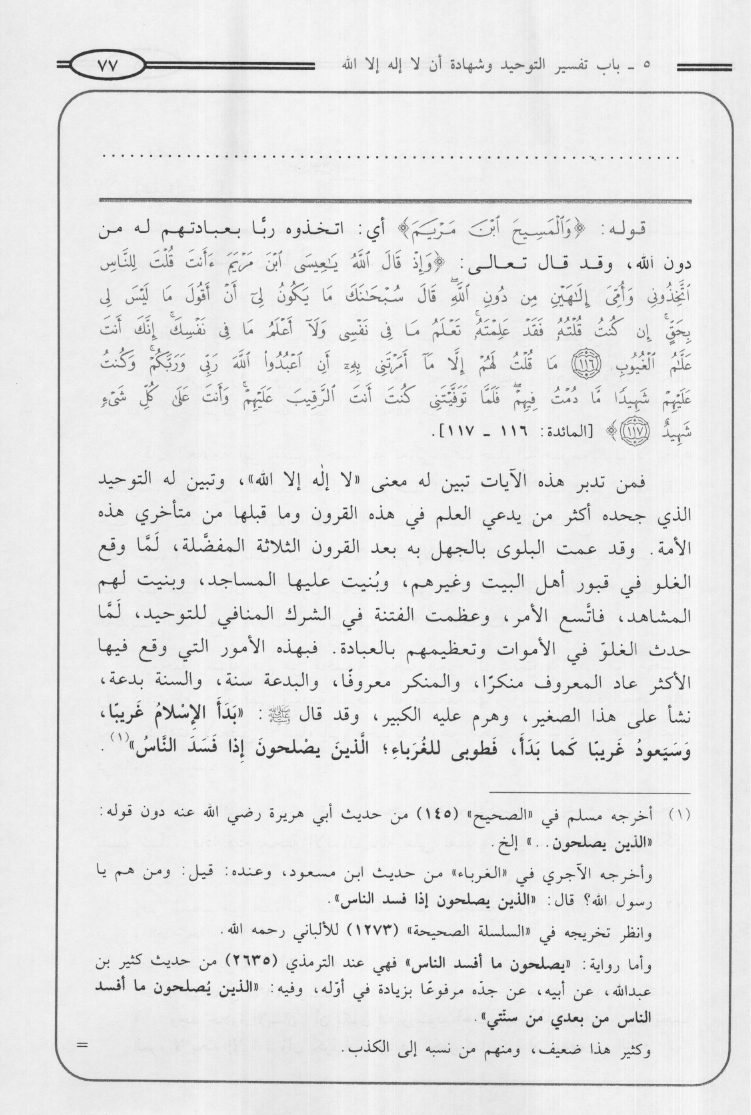 ٥ ـ باب تفسير التوحيد وشهادة أن لا إله إلا الله
٧٧
قوله: ﴿وَٱلْمَسِيحَ ٱبْنَ مَرْيَمَ﴾ أي: اتخذوه ربًّا بعبادتهم له من
دون الله، وقد قال تعالى: ﴿وَإِذْ قَالَ ٱللَّهُ يَٰعِيسَى ٱبْنَ مَرْيَمَ ءَأَنتَ قُلْتَ لِلنَّاسِ
ٱتَّخِذُونِى وَأُمِّىَ إِلَٰهَيْنِ مِن دُونِ ٱللَّهِۖ قَالَ سُبْحَٰنَكَ مَا يَكُونُ لِىٓ أَنْ أَقُولَ مَا لَيْسَ لِى
بِحَقٍّۚ إِن كُنتُ قُلْتُهُۥ فَقَدْ عَلِمْتَهُۥۚ تَعْلَمُ مَا فِى نَفْسِى وَلَآ أَعْلَمُ مَا فِى نَفْسِكَۚ إِنَّكَ أَنتَ
عَلَّٰمُ ٱلْغُيُوبِ ﴿١١٦﴾ مَا قُلْتُ لَهُمْ إِلَّا مَآ أَمَرْتَنِى بِهِۦٓ أَنِ ٱعْبُدُوا۟ ٱللَّهَ رَبِّى وَرَبَّكُمْۚ وَكُنتُ
عَلَيْهِمْ شَهِيدًا مَّا دُمْتُ فِيهِمْۖ فَلَمَّا تَوَفَّيْتَنِى كُنتَ أَنتَ ٱلرَّقِيبَ عَلَيْهِمْۚ وَأَنتَ عَلَىٰ كُلِّ شَىْءٍ
شَهِيدٌ ﴿١١٧﴾﴾ [المائدة: ١١٦ ـ ١١٧].
فمن تدبر هذه الآيات تبين له معنى «لا إلٰه إلا الله»، وتبين له التوحيد
الذي جحده أكثر من يدعي العلم في هذه القرون وما قبلها من متأخري هذه
الأمة. وقد عمت البلوى بالجهل به بعد القرون الثلاثة المفضَّلة، لَمَّا وقع
الغلو في قبور أهل البيت وغيرهم، وبُنيت عليها المساجد، وبنيت لهم
المشاهد، فاتَّسع الأمر، وعظمت الفتنة في الشرك المنافي للتوحيد، لَمَّا
حدث الغلوّ في الأموات وتعظيمهم بالعبادة. فبهذه الأمور التي وقع فيها
الأكثر عاد المعروف منكرًا، والمنكر معروفًا، والبدعة سنة، والسنة بدعة،
نشأ على هذا الصغير، وهرم عليه الكبير، وقد قال ﷺ: «بَدَأَ الإِسْلامُ غَرِيبًا،
وَسَيَعودُ غَريبًا كَما بَدَأَ، فَطوبى للغُرَباءِ؛ الَّذينَ يصْلحونَ إذا فَسَدَ النَّاسُ»(١).
(١) أخرجه مسلم في «الصحيح» (١٤٥) من حديث أبي هريرة رضي الله عنه دون قوله:
«الذين يصلحون..» إلخ.
وأخرجه الآجري في «الغرباء» من حديث ابن مسعود، وعنده: قيل: ومن هم يا
رسول الله؟ قال: «الذين يصلحون إذا فسد الناس».
وانظر تخريجه في «السلسلة الصحيحة» (١٢٧٣) للألباني رحمه الله.
وأما رواية: «يصلحون ما أفسد الناس» فهي عند الترمذي (٢٦٣٥) من حديث كثير بن
عبدالله، عن أبيه، عن جدّه مرفوعًا بزيادة في أوّله، وفيه: «الذين يُصلحون ما أفسد
الناس من بعدي من سنّتي».
وكثير هذا ضعيف، ومنهم من نسبه إلى الكذب.
=